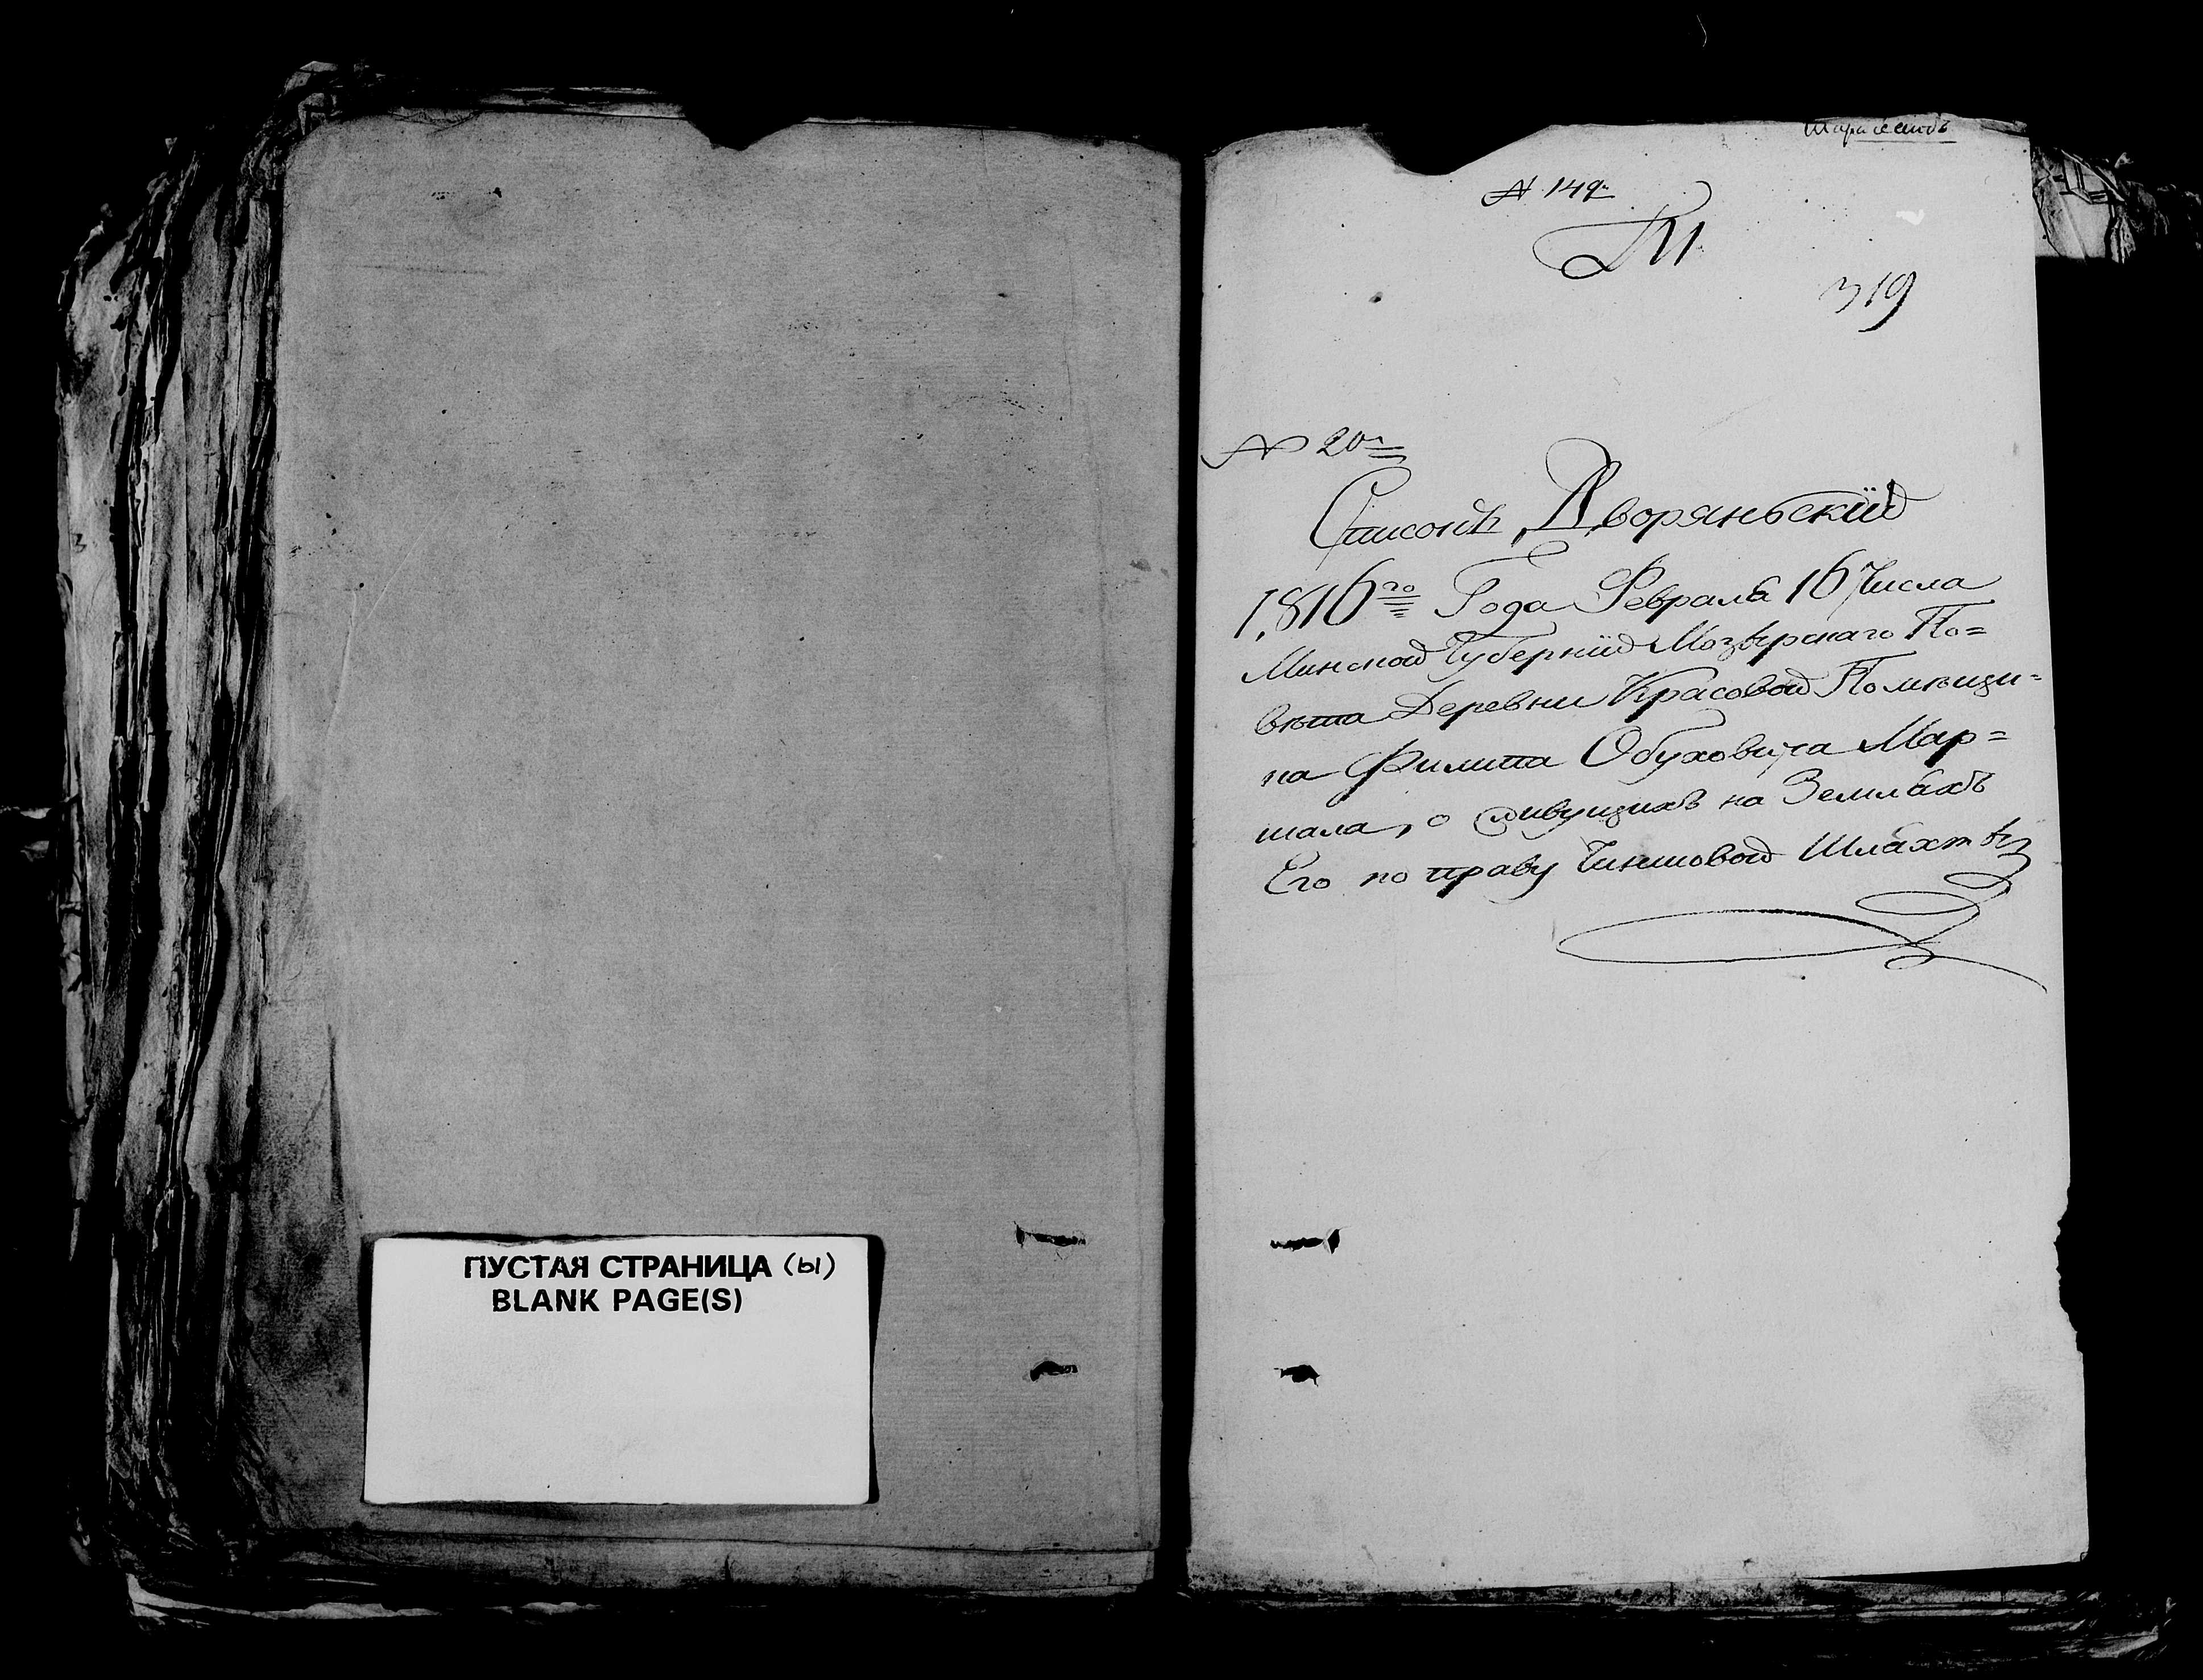 ПУСТАЯ СТРАНИЦА (ы)
BLANK PAGE(S)
№ 149
319
№ 20
Списокъ Дворяньскій
1816го Года Февраля 16 Числа
Минской Губерніи Мозырскаго По=
вѣта Деревни Красовой Помѣщи=
ка Филипа Обуховича Мар=
шала, о живущихъ на Земляхъ
Его по праву Чиншовой Шляхты